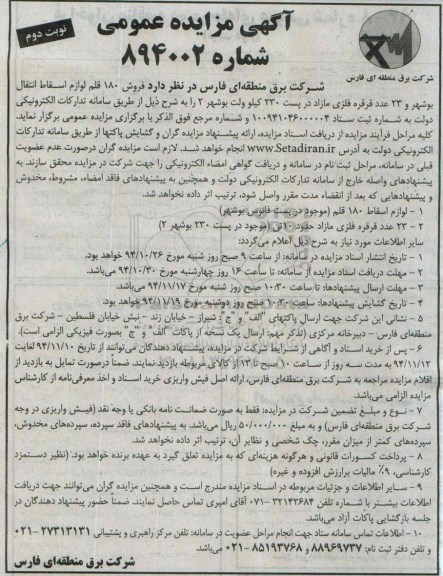 آگهی مزایده عمومی
شماره ۸۹۴۰۰۲
نوبت دوم
شرکت برق منطقه ای فارس
شرکت برق منطقه‌ای فارس در نظر دارد فروش ۱۸۰ قلم لوازم اسقاط انتقال
بوشهر و ۲۳ عدد قرقره فلزی مازاد در پست ۲۳۰ کیلو ولت بوشهر ۲ را به شرح ذیل از طریق سامانه تدارکات الکترونیکی
دولت به شماره ثبت ستاد ۱۰۰۹۴۱۰۴۶۰۰۰۰۰۴ و شماره مرجع فوق الذکر با برگزاری مزایده عمومی برگزار نماید.
کلیه مراحل فرآیند مزایده از دریافت اسناد مزایده، ارائه پیشنهاد مزایده گران و گشایش پاکتها از طریق سامانه تدارکات
الکترونیکی دولت به آدرس www.Setadiran.ir انجام خواهد شد. لازم است مزایده گران درصورت عدم عضویت
قبلی در سامانه، مراحل ثبت نام در سامانه و دریافت گواهی امضاء الکترونیکی را جهت شرکت در مزایده محقق سازند. به
پیشنهادهای واصله خارج از سامانه تدارکات الکترونیکی دولت و همچنین به پیشنهادهای فاقد امضاء، مشروط، مخدوش
و پیشنهادهایی که بعد از انقضاء مدت مقرر واصل شود، ترتیب اثر داده نخواهد شد.
۱ - لوازم اسقاط ۱۸۰ قلم (موجود در پست فانوس بوشهر)
۲ - ۲۳ عدد قرقره فلزی مازاد حدود ۱۰تن (موجود در پست ۲۳۰ بوشهر ۲)
سایر اطلاعات مورد نیاز به شرح ذیل اعلام می‌گردد:
۱ - تاریخ انتشار اسناد مزایده در سامانه: از ساعت ۹ صبح روز شنبه مورخ ۹۴/۱۰/۲۶ خواهد بود.
۲ - مهلت دریافت اسناد مزایده از سامانه: تا ساعت ۱۶ روز چهارشنبه مورخ ۹۴/۱۰/۳۰ می‌باشد.
۳ - مهلت ارسال پیشنهادها: تا ساعت ۱۰:۳۰ صبح روز شنبه مورخ ۹۴/۱۱/۱۷ می‌باشد.
۴ - تاریخ گشایش پیشنهادها: ساعت ۱۰:۳۰ صبح روز دوشنبه مورخ ۹۴/۱۱/۱۹ خواهد بود.
۵ - نشانی این شرکت جهت ارسال پاکتهای "الف" و "ج": شیراز - خیابان زند - نبش خیابان فلسطین - شرکت برق
منطقه‌ای فارس - دبیرخانه مرکزی (تذکر مهم: ارسال یک نسخه از پاکات "الف" و "ج" بصورت فیزیکی الزامی است).
۶ - پس از خرید اسناد و آگاهی از شرایط شرکت در مزایده، پیشنهاد دهندگان می‌توانند از تاریخ ۹۴/۱۱/۱۰ لغایت
۹۴/۱۱/۱۲ به مدت سه روز از ساعت ۱۰ صبح تا ۱۳ از کالای مربوطه بازدید نمایند. ضمناً درصورت تمایل به بازدید از
اقلام مزایده مراجعه به شرکت برق منطقه‌ای فارس، ارائه اصل فیش واریزی خرید اسناد و اخذ معرفی‌نامه از کارشناس
مزایده الزامی می‌باشد.
۷ - نوع و مبلغ تضمین شرکت در مزایده: فقط به صورت ضمانت نامه بانکی یا وجه نقد (فیش واریزی در وجه
شرکت برق منطقه‌ای فارس) و به مبلغ ۵۰/۰۰۰/۰۰۰ ریال می‌باشد. به پیشنهادهای فاقد سپرده، سپرده‌های مخدوش،
سپرده‌های کمتر از میزان مقرر، چک شخصی و نظایر آن، ترتیب اثر داده نخواهد شد.
۸ - پرداخت کسورات قانونی و هرگونه هزینه‌ای که به مزایده تعلق گیرد به عهده برنده خواهد بود. (نظیر دستمزد
کارشناسی، ۹٪ مالیات برارزش افزوده و غیره)
۹ - سایر اطلاعات و جزئیات مربوطه در اسناد مزایده مندرج است و همچنین مزایده گران می‌توانند جهت دریافت
اطلاعات بیشتر با شماره تلفن ۳۲۱۴۳۶۸۴-۰۷۱ آقای امیری تماس حاصل نمایند. ضمناً حضور پیشنهاد دهندگان در
جلسه بازگشایی پاکات آزاد می‌باشد.
۱۰ - اطلاعات تماس سامانه ستاد جهت انجام مراحل عضویت در سامانه: تلفن مرکز راهبری و پشتیبانی ۲۷۳۱۳۱۳۱-۰۲۱
و تلفن دفتر ثبت نام: ۸۸۹۶۹۷۳۷ و ۸۵۱۹۳۷۶۸-۰۲۱ می‌باشد.
شرکت برق منطقه‌ای فارس